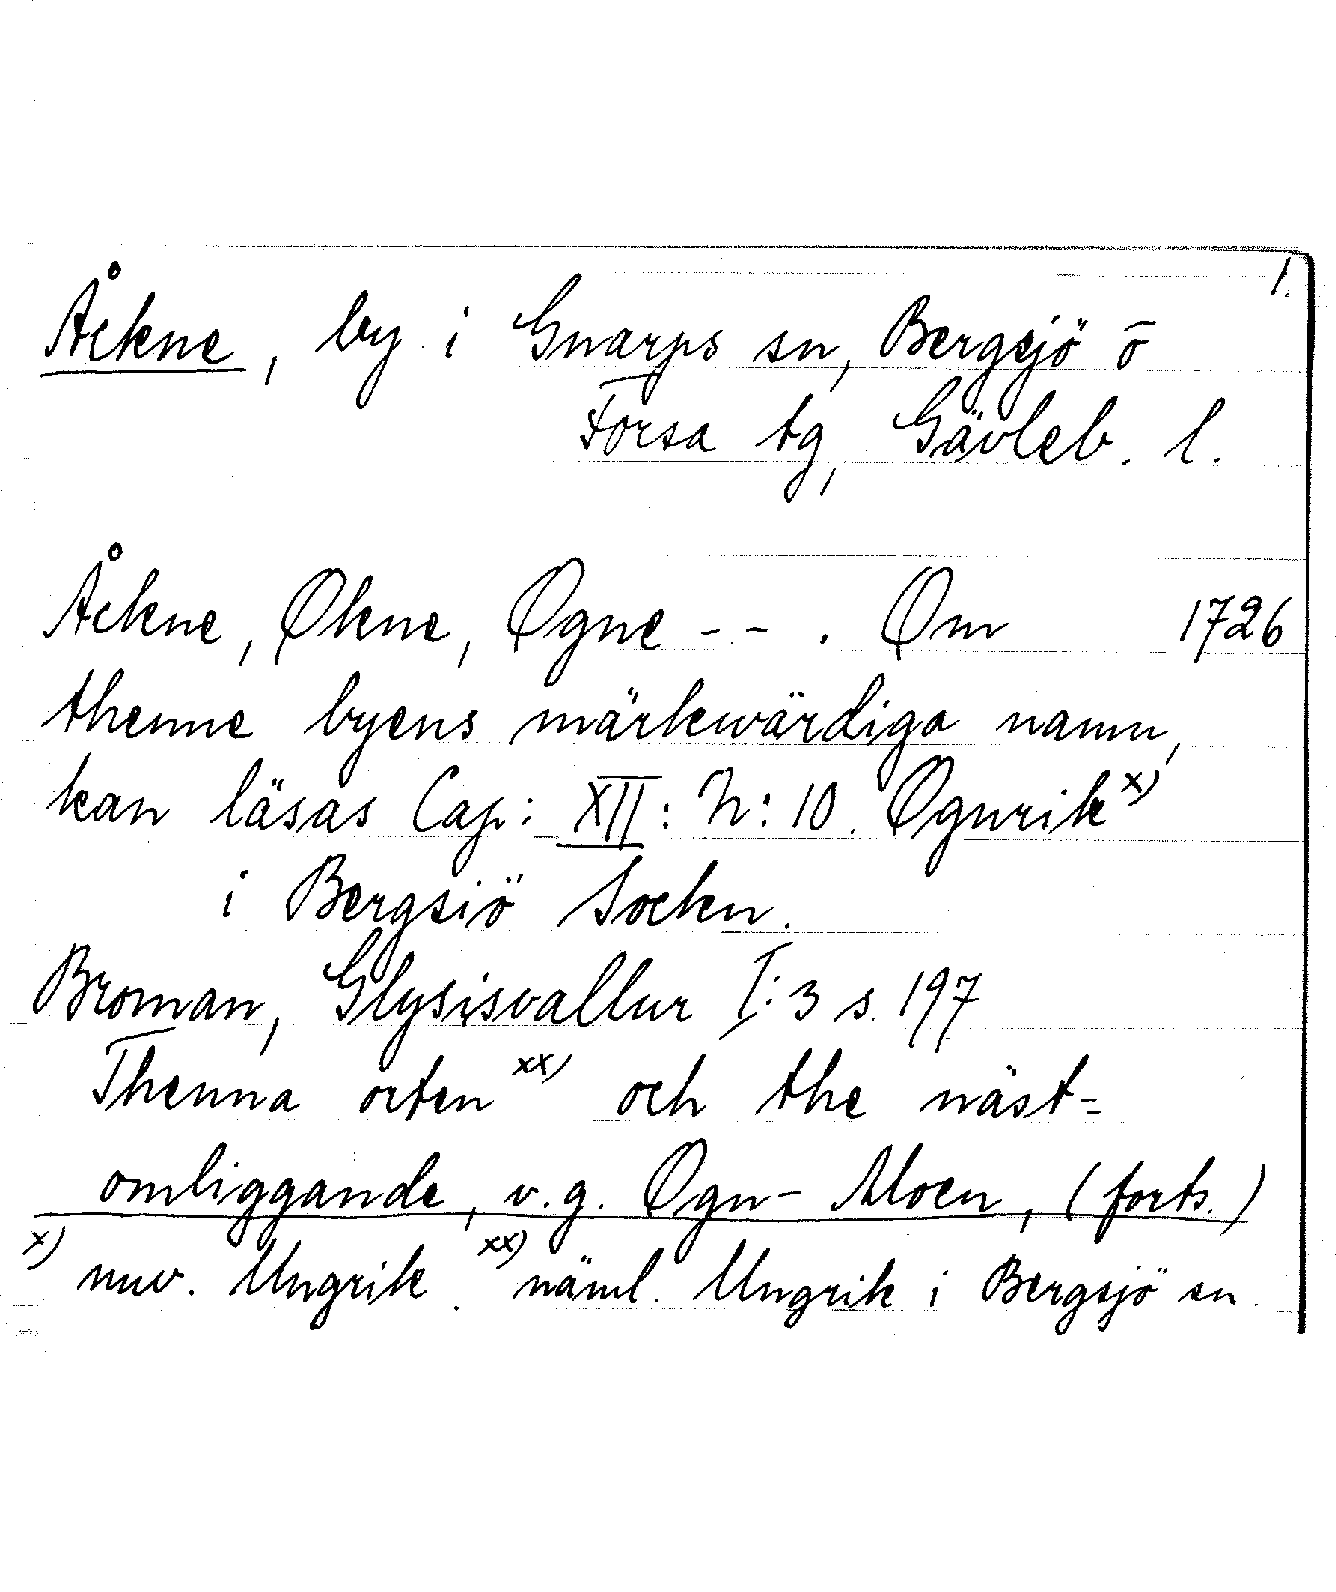 1.
Åckne, by i Gnarps sn, Bergsjö o̅
Forsa tg, Gävleb. l.
Åckne, Økne, Øgne - - . Om 1726
thenne byens märkwärdiga namn,
kan läsas Cap: XII: N: 10. Øgnrik x)
i Bergsiö Sockn.
Broman, Glysisvallur I:3 s. 197
Thenna orten xx) och the näst-
omliggande, v.g. Øgn- Moen, (forts.)
x) nuv. Ungrik. xx) näml. Ungrik i Bergsjö sn